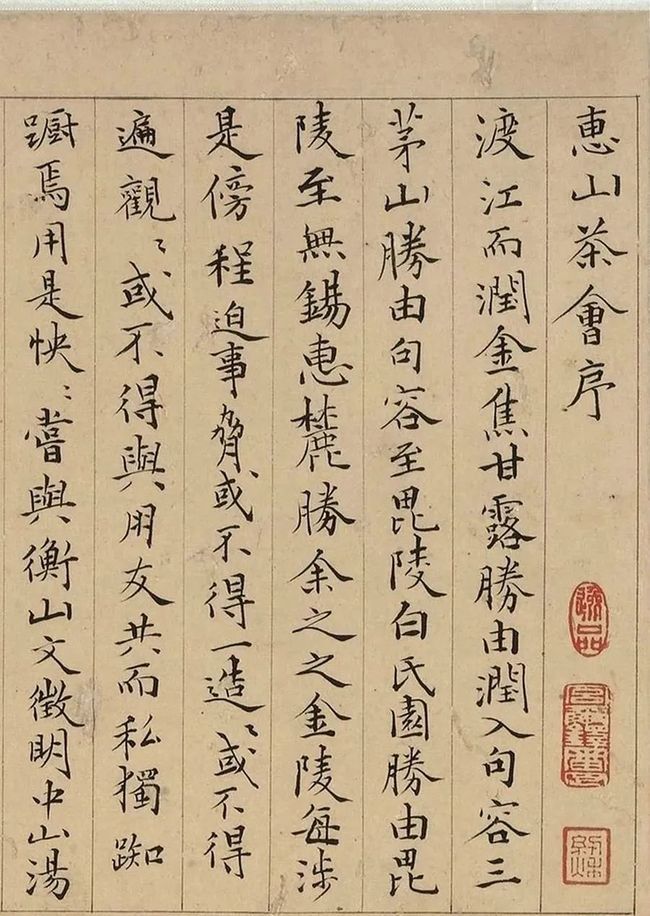 惠山茶會序
渡江而潤金焦甘露勝由潤入句容三
茅山勝由句容至毘陵白氏園勝由毘
陵至無錫惠麓勝余之之金陵每涉
是傍程迫事脅或不得一造〻或不得
遍觀〻或不得與朋友共而私獨踟
蹰焉用是怏〻嘗與衡山文徵明中山湯